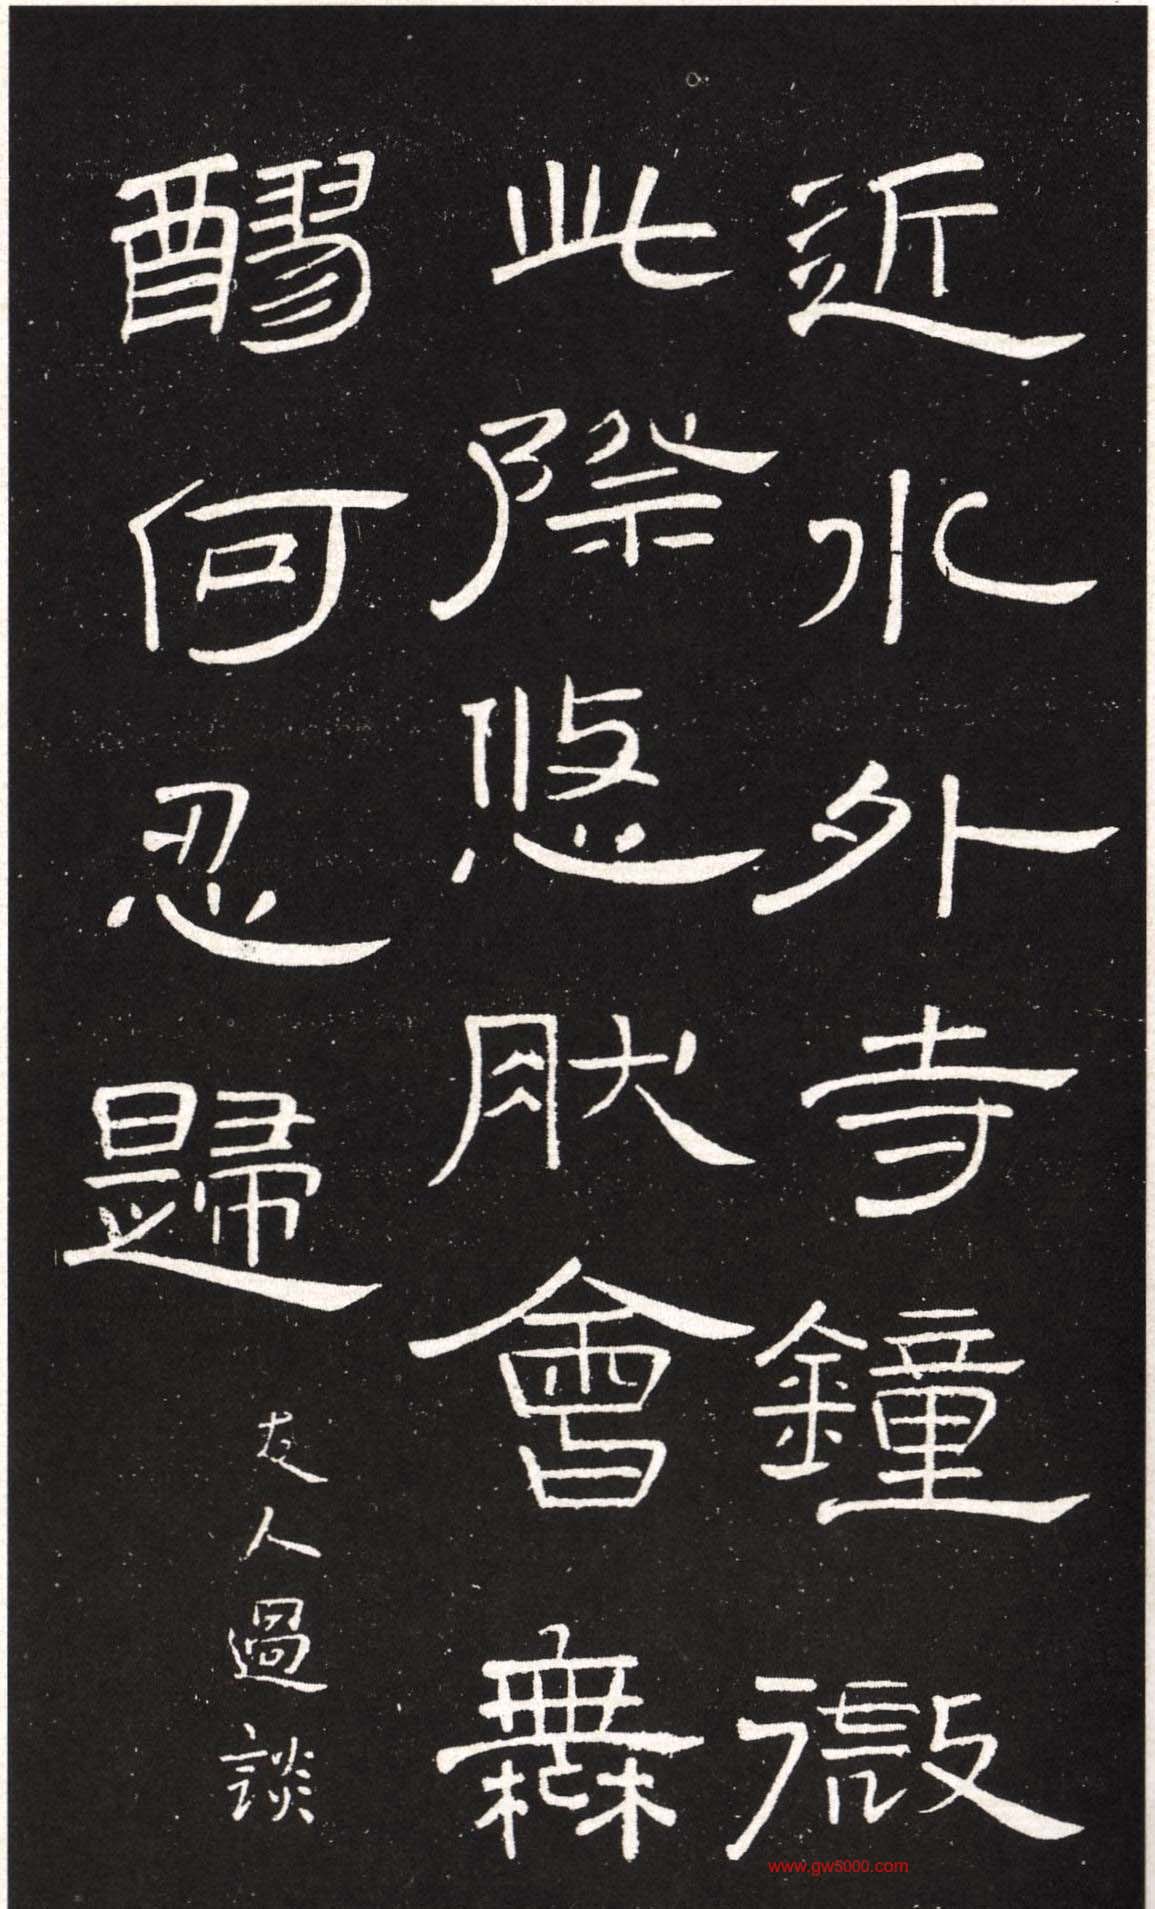 近水外寺鐘微
此際悠肰會無
醪何忍歸
友人過談
www.gw5000.com